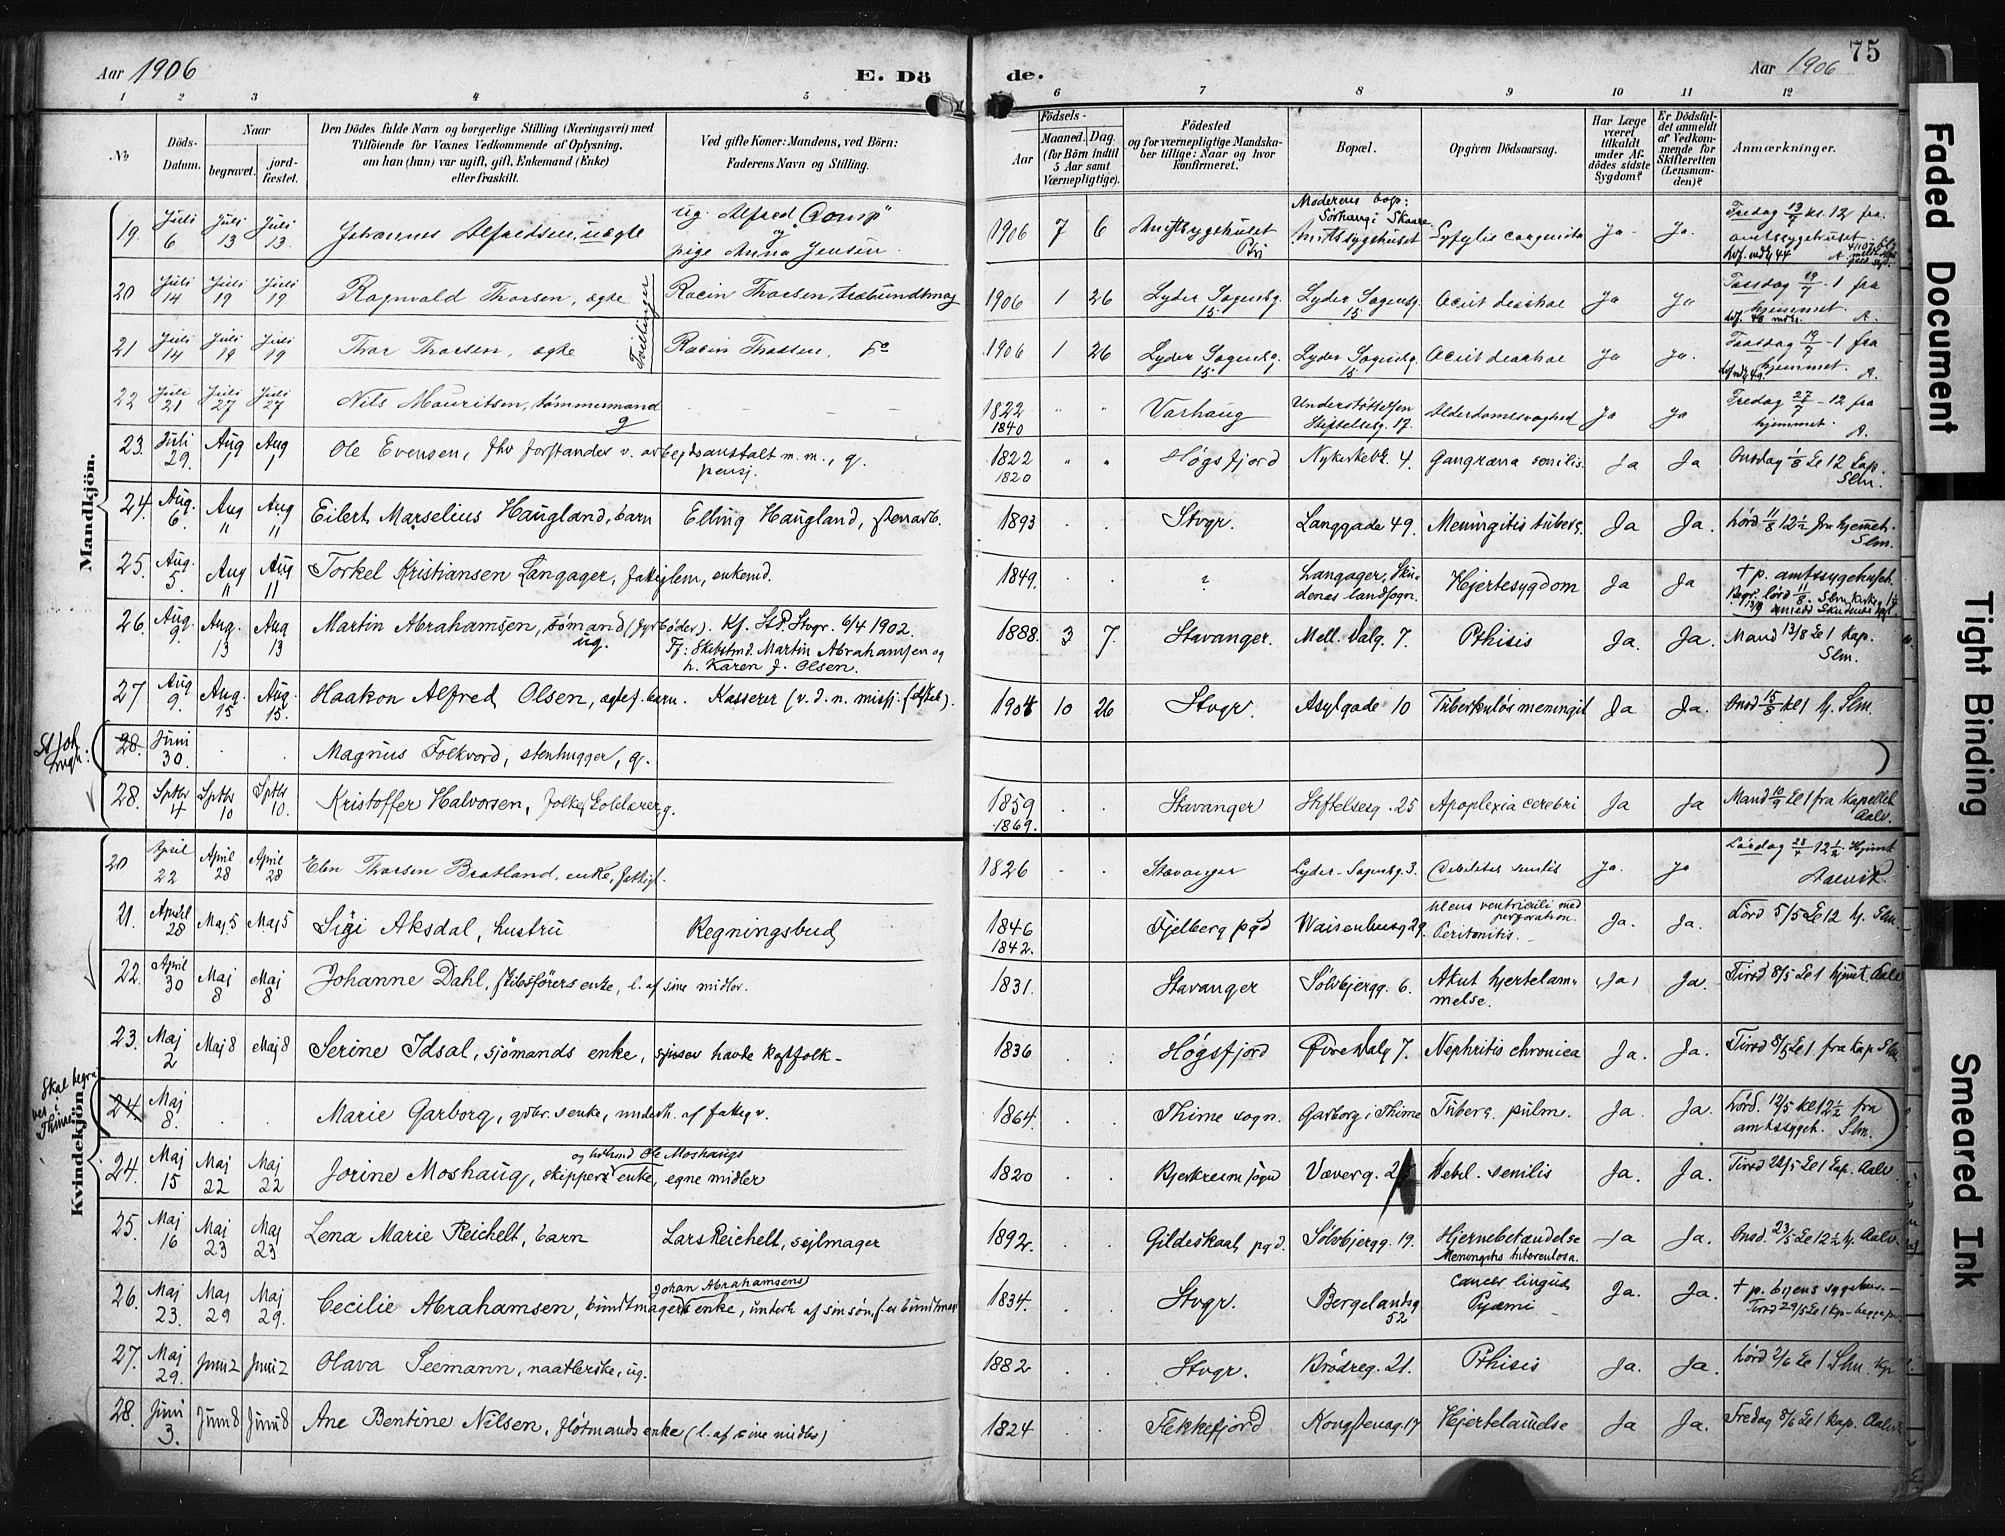 Aar 1906
E. Dö
de.
Aar 1906
75
1 2 3 4 5 6 7 8 9 10 11 12
No
Döds-
Datum.
Naar
begravet.
jord-
fæstet.
Den Dödes fulde Navn og borgerlige Stilling (Næringsvei) med
Tilföiende for Voxnes Vedkommende af Oplysning,
om han (hun) var ugift, gift, Enkemand (Enke)
eller fraskilt.
Ved gifte Koner: Mandens, ved Börn:
Faderens Navn og Stilling.
Födsels-
Aar
Maaned. Dag.
(for Börn indtil
5 Aar samt
Værnepligtige).
Födested
og for værnepligtige Mandska-
ber tillige: Naar og hvor
konfirmeret.
Bopæl.
Opgiven Dödsaarsag.
Har Læge
været
tilkaldt
under Af-
dödes sidste
Sygdom?
Er Dödsfal-
det anmeldt
af Vedkom-
mende for
Skifteretten
(Lensman-
den)?
Anmærkninger.
Mandkjön.
19. Juli 6 Juli 13 Juli 13. Johannes Alfredsen, uægte ug. Alfred "Comp" og pige Anna Jensen. 1906 7 6 Amtssygehuset Moderens bop: Sörhaug i Skaare Amtssygehuset Syfylis congenita Ja. Ja. Fredag 13/7 kl. 12 fra amtssygehuset.
20 Juli 14 Juli 19 Juli 19 Ragnvald Thorsen, ægte Tvillinger Racin Thorsen, træbundtmag 1906 1 26 Lyder Sagensg. 15. Lyder Sagensg. 15 Acut diarrhoe Ja Ja Torsdag 19/7 - 1 fra hjemmet. A.
21 Juli 14 Juli 19 Juli 19 Thor Thorsen, ægte Racin Thorsen, Do 1906 1 26 Lyder Sagensg. 15. Lyder Sagensg. 15. Acut diarrhoe Ja Ja. Torsdag 19/7 - 1 fra hjemmet. A.
22 Juli 21 Juli 27 Juli 27 Nils Mauritsen, tömmermand g 1822 1840 " " Varhaug Understöttelsen Stiftelsesg. 17. Alderdomssvaghed Ja Ja Fredag 27/7 - 12 fra hjemmet. A.
23. Juli 29. Aug 1 Aug 1 Ole Evensen, fhv forstander v. arbejdsanstalt m. m., g. pensj. 1822 1820 " " Högsfjord Nykirkebk. 4. Gangræna senilis. Ja Ja Onsdag 1/8 kl 12 kap. Slm.
24. Aug. 6. Aug 11 Aug 11 Eilert Marselius Haugland, barn Elling Haugland, stenarb. 1893 . . Stvgr. Langgade 49. Meningitis tuberc. Ja Ja. Lörd 11/8 12 1/2 fra hjemmet. Slm.
25. Aug. 5. Aug 11 Aug 11 Torkel Kristiansen Langager, fattiglem, enkemd. 1849. . . ? Langager, Skudenes landsogn. Hjertesygdom Ja Ja † p. amtssygehuset.
26. Aug. 9. Aug. 13 Aug 13 Martin Abrahamsen, sömand (fyrböder). ug. Kf. St. P. Stvgr. 6/4 1902. F: Skibstmd. Martin Abrahamsen og h. Karen f. Olsen. 1888. 3 7. Stavanger. Mell. Dalg. 7. Pthisis Ja. Ja. Mand 13/8 kl 1 kap. Slm.
27 Aug 9. Aug. 15 Aug. 15. Haakon Alfred Olsen, ægtef. barn. Kasserer (v. d. n. missj. selskab). 1904 10 26 Stvgr. Asylgade 10 Tuberkulös meningit Ja Ja. Onsd 15/8 kl 1 hj. Slm.
St Joh. sogn.
28. Juni 30. . . Magnus Folkvord, stenhugger, g.
28. Sptbr 4 Sptbr 10 Sptbr 10. Kristoffer Halvorsen, folkeskolelærer, g. 1859 1869. . . Stavanger Stiftelsesg. 25 Apoplexia cerebri Ja Ja Mand 10/9 kl 1 fra kapellet Aalv.
Kvindekjön.
20 April 22 April 28 April 28 Elen Thorsen Bratland, enke, fattigl. 1826 . . Stavanger Lyder-Sagensg. 3. Debilitas senilis Ja. Ja Lördag 28/4 12 1/2 Hjemmet Aalvik.
21. April 28 Maj 5 Maj 5 Sigi Aksdal, hustru Regningsbud 1846 1842. . . Fjelberg pgd Waisenhusg 29. Ulcus ventriculi med perforation. Peritonitis. Ja. Ja. Lörd 5/5 kl 12 hj. Slm.
22. April 30 Maj 8 Maj 8 Johanne Dahl, skibsförers enke, l. af sine midler. 1831. Stavanger Sölvbjergg. 6. Akut hjertelammelse. Ja, Ja. Tirsd 8/5 kl 1 hjmt. Aalv
23. Maj 2 Maj 8 Maj 8 Serine Idsal, sjömands enke, havde kostfolk - 1836 . . Högsfjord Övre Dalg 7. Nephritis chronica Ja. Ja. Tirsd 8/5 kl 1 fra kap Slm.
Skal begraves i Thime.
24. Maj 8. . . Marie Garborg, gdbr.s enke, underh. af fattigv. 1864. . . Thime sogn. Garborg i Thime Tuberc. pulm. Ja. Ja. Lörd. 12/5 kl 12 1/2 fra amtssygeh. Slm.
24. Maj 15 Maj 22 Maj 22 Jorine Moshaug, skippers enke, egne midler og höker Ole Moshaugs 1820 . . Bjerkreim sogn Væverg. 2 Debil. senilis Ja. Ja. Tirsd 22/5 kl 1 kap. Aalv.
25. Maj 16 Maj 23 Maj 23 Lena Marie Reichelt, barn Lars Reichelt, sejlmager 1892. . . Gildeskaal pgd. Sölvbjergg. 19. Hjernebetændelse Meningitis tuberculosa. Ja Ja. Onsd. 23/5 kl 12 1/2 hj. Aalv.
26. Maj 23. Maj 29 Maj 29. Cecilie Abrahamsen, buntmager Johan Abrahamsens enke, underh. af sin sön, f. er bundtmag 1834. . . Stvgr. Bergelandsg 52 Cancer lingvæ Pyæmi Ja. Ja. † p. byens sygehus. - Tirsd 29/5 kl 1 kap -
27. Maj 29. Juni 2 Juni 2 Olava Seemann, naatlerske, ug. 1882 . . Stvgr. Brödreg. 21. Pthisis Ja. Ja. Lörd 2/6 kl 1 Slm. kap
28. Juni 3. Juni 8 Juni 8 Ane Bentine Nilsen, flötmands enke (l. af sine midler) 1824 . . Flekkefjord Kongstensg. 17 Hjertelamelse Ja Ja. Fredag 8/6 kl 1 kap. Aalv.
Faded Document
Tight Binding
Smeared Ink